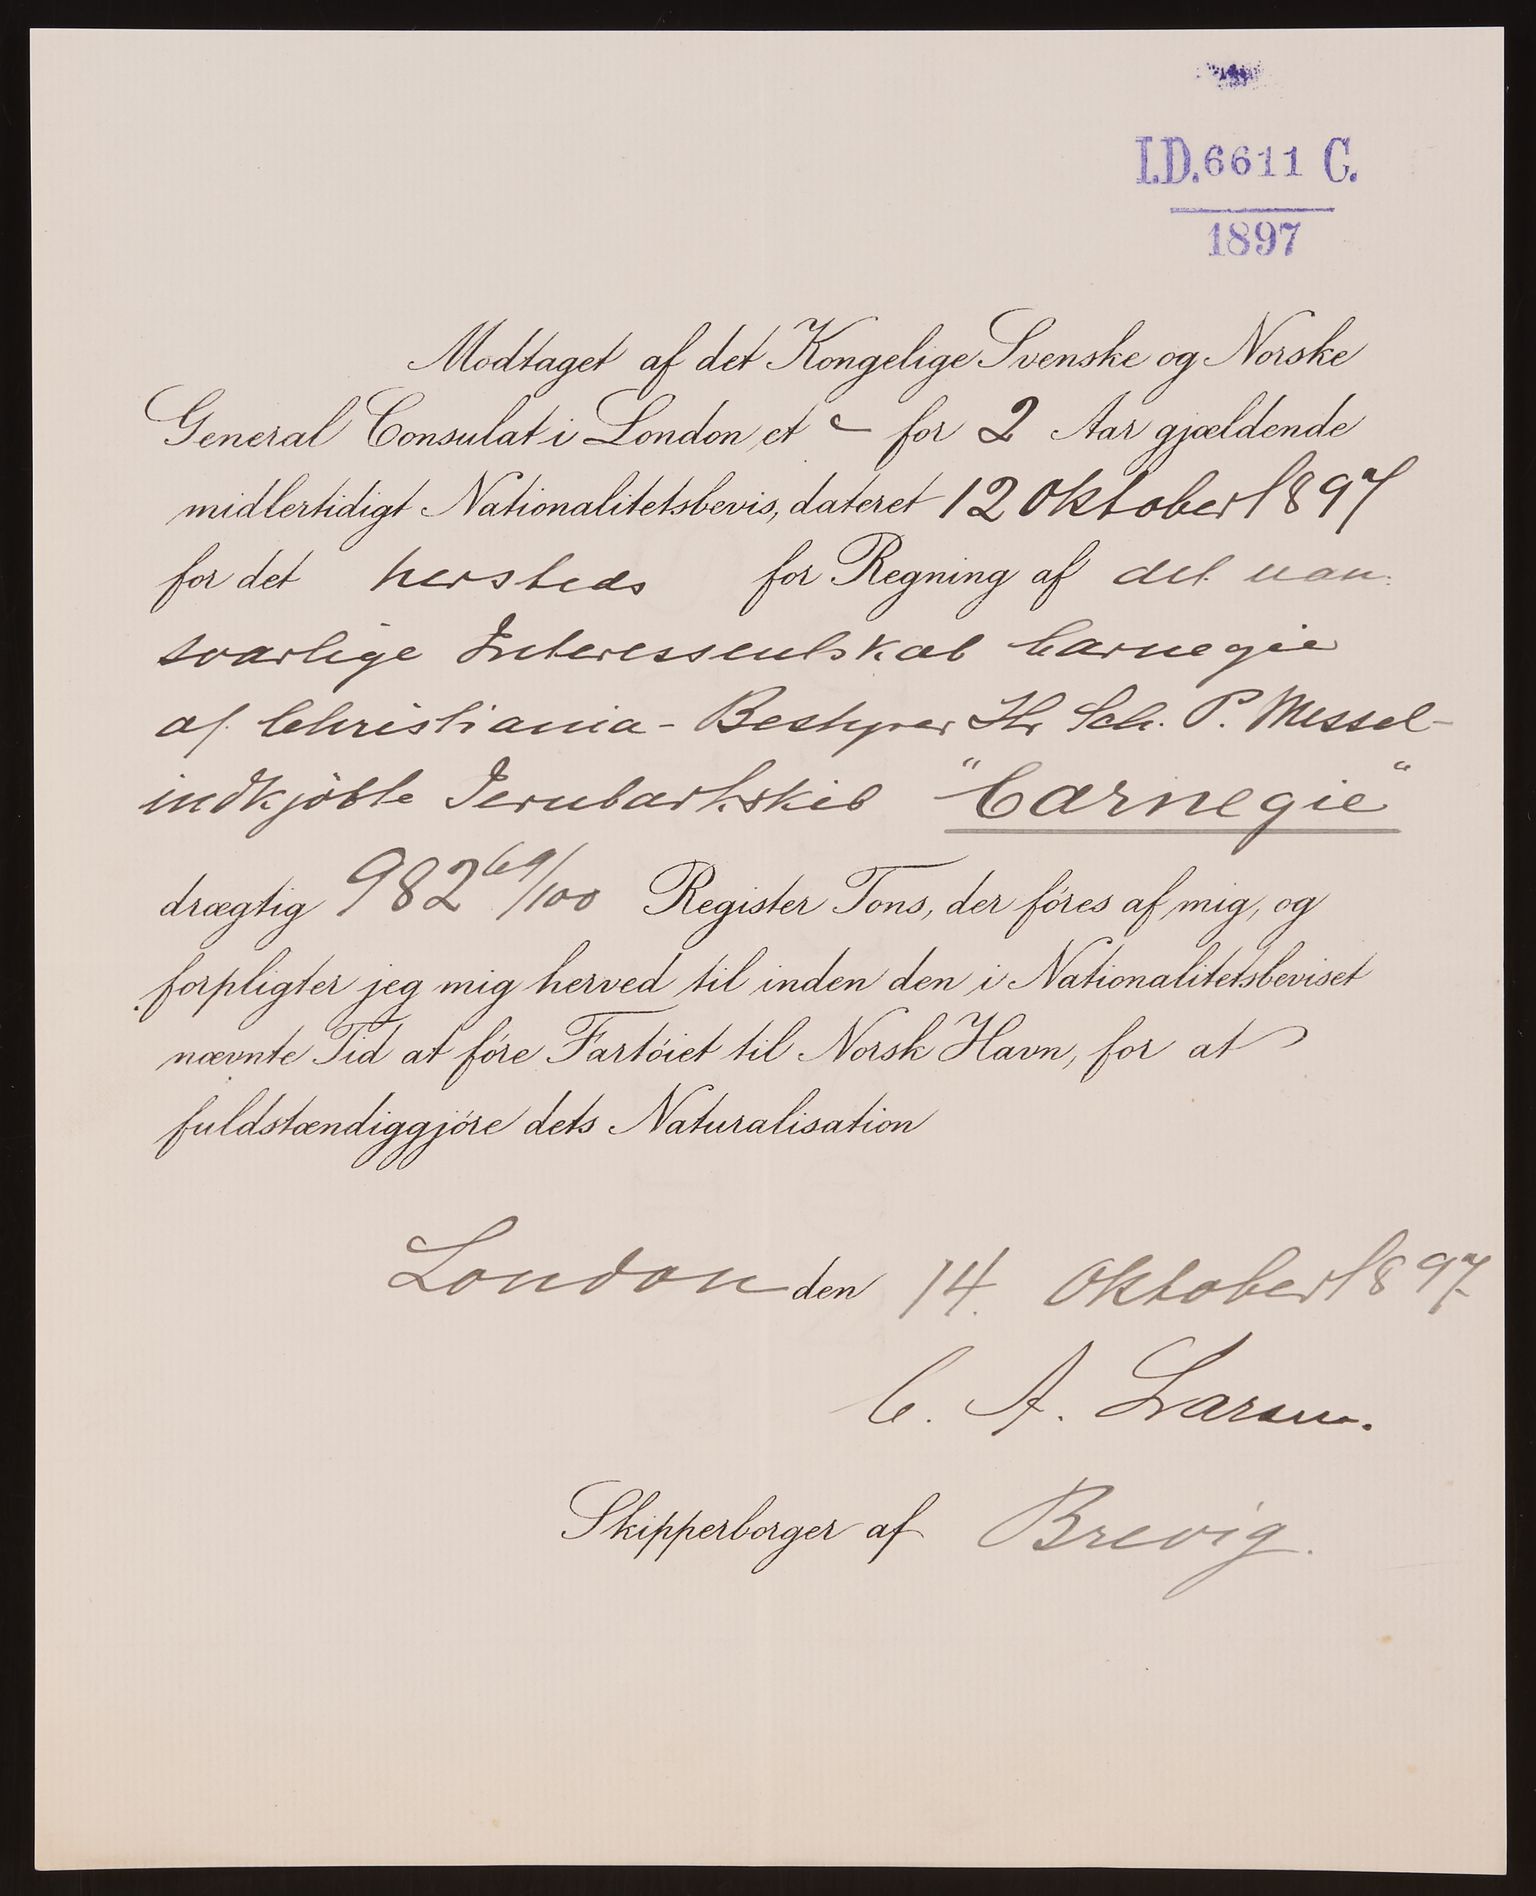 I.D. 6611 C.
1897
Modtaget af det Kongelige Svenske og Norske
General Consulat i London et for 2 Aar gjældende
midlertidigt Nationalitetsbevis, dateret 12 Oktober 1897
for det hersteds for Regning af det uan-
svarlige Interessentskab Carnegie
af Christiania - Bestyrer Hr Sch. P. Messel -
indkjöbte Jernbarkskib "Carnegie"
drægtig 982 69/100 Register Tons, der föres af mig, og
forpligter jeg mig herved til inden den i Nationalitetsbeviset
nævnte Tid at före Fartöiet til Norsk Havn, for at
fuldstændiggjöre dets Naturalisation
London den 14. Oktober 1897
C. A. Larsen.
Skipperborger af Brevig.